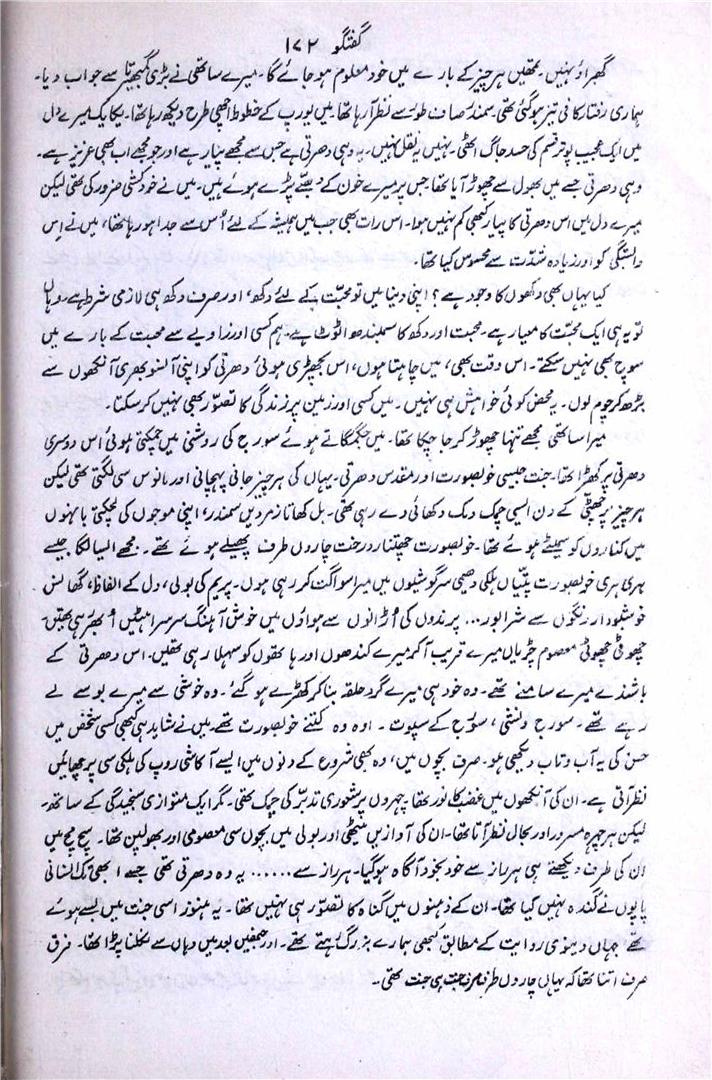 گفتگو ۱۷۲
گھبراؤ نہیں۔ تمھیں ہر چیز کے بارے میں خود معلوم ہو جائے گا۔ میرے ساتھی نے بڑی گمبھیتا سے جواب دیا۔
ہماری رفتار کافی تیز ہو گئی تھی۔ سمندر صاف طور سے نظر آ رہا تھا۔ میں یورپ کے خطوط اچھی طرح دیکھ رہا تھا۔ یکایک میرے دل
میں ایک عجیب پوتر قسم کی حسد جاگ اٹھی۔ نہیں یہ نقل نہیں۔ یہ وہی دھرتی ہے جس سے مجھے پیار ہے اور جو مجھے اب بھی عزیز ہے۔
وہی دھرتی جسے میں بھول سے چھوڑ آیا تھا جس پر میرے خون کے دھبے پڑے ہوئے ہیں۔ میں نے خودکشی ضرور کی تھی لیکن
میرے دل میں اس دھرتی کا پیار کبھی کم نہیں ہوا۔ اس رات بھی جب میں ہمیشہ کے لئے اُس سے جدا ہو رہا تھا، میں نے اِس
وابستگی کو اور زیادہ شدّت سے محسوس کیا تھا۔
کیا یہاں بھی دکھوں کا وجود ہے؟ اپنی دنیا میں تو محبّت کے لئے دکھ، اور صرف دکھ ہی لازمی شرط ہے۔ وہاں
تو یہ ہی ایک محبّت کا معیار ہے۔ محبت اور دکھ کا سمبندھ اٹوٹ ہے۔ ہم کسی اور زاویے سے محبت کے بارے میں
سوچ بھی نہیں سکتے۔ اس وقت بھی، میں چاہتا ہوں، اس بچھڑی ہوئی دھرتی کو اپنی آنسو بھری آنکھوں سے
بڑھ کر چوم لوں۔ یہ محض کوئی خواہش ہی نہیں۔ میں کسی اور زمین پر زندگی کا تصوّر بھی نہیں کر سکتا۔
میرا ساتھی مجھے تنہا چھوڑ کر جا چکا تھا۔ میں جگمگاتے ہوئے سورج کی روشنی میں چمکتی ہوئی اس دوسری
دھرتی پر کھڑا تھا۔ جنت جیسی خوبصورت اور مقدس دھرتی۔ یہاں کی ہر چیز جانی پہچانی اور مانوس سی لگتی تھی لیکن
ہر چیز پر چھٹی کے دن ایسی چمک دمک دکھائی دے رہی تھی۔ بل کھاتا زمردیں سمندر، اپنی موجوں کی لچکتی بانہوں
میں کناروں کو سمیٹے ہوئے تھا۔ خوبصورت چھتنار درخت چاروں طرف پھیلے ہوئے تھے۔ مجھے ایسا لگا جیسے
ہری ہری خوبصورت پتیّاں ہلکی دھیمی سرگوشیوں میں میرا سواگت کر رہی ہوں۔ پریم کی بولی، دل کے الفاظ، گھاس
خوشبودار رنگوں سے شرابور... پرندوں کی اُڑانوں سے ہواؤں میں خوش آہنگ سرسراہٹیں اُبھر رہی تھیں
چھوٹی چھوٹی معصوم چڑیاں میرے قریب آ کر میرے کندھوں اور ہاتھوں کو سہلا رہی تھیں۔ اس دھرتی کے
باشندے میرے سامنے تھے۔ وہ خود ہی میرے گرد حلقہ بنا کر کھڑے ہو گئے۔ وہ خوشی سے میرے بوسے لے
رہے تھے۔ سورج ونشی، سورج کے سپوت۔ اوہ وہ کتنے خوبصورت تھے۔ میں نے شاید ہی کبھی کسی شخص میں
حسن کی یہ آب و تاب دیکھی ہو۔ صرف بچوں میں، وہ بھی شروع کے دنوں میں ایسے آکاشی روپ کی ہلکی سی پرچھائیں
نظر آتی ہے۔ ان کی آنکھوں میں غضب کا نور تھا۔ چہروں پر شعوری تدبّر کی چمک تھی۔ مگر ایک متوازی سنجیدگی کے ساتھ۔
لیکن ہر چہرہ مسرور اور بحال نظر آتا تھا۔ ان کی آوازیں میٹھی اور بولی میں بچوں سی معصومی اور بھولپن تھا۔ سچ مچ میں
ان کی طرف دیکھتے ہی ہر راز سے خود بخود آگاہ ہو گیا۔ ہر راز سے...... یہ وہ دھرتی تھی جسے ابھی تک انسانی
پاپوں نے گندہ نہیں کیا تھا۔ ان کے ذہنوں میں گناہ کا تصوّر ہی نہیں تھا۔ یہ ہنوز اسی جنت میں بسے ہوئے
تھے جہاں دینوی روایت کے مطابق کبھی ہمارے بزرگ رہتے تھے۔ اور جنھیں بعد میں وہاں سے نکلنا پڑا تھا۔ فرق
صرف اتنا تھا کہ یہاں چاروں طرف جنت ہی جنت تھی۔